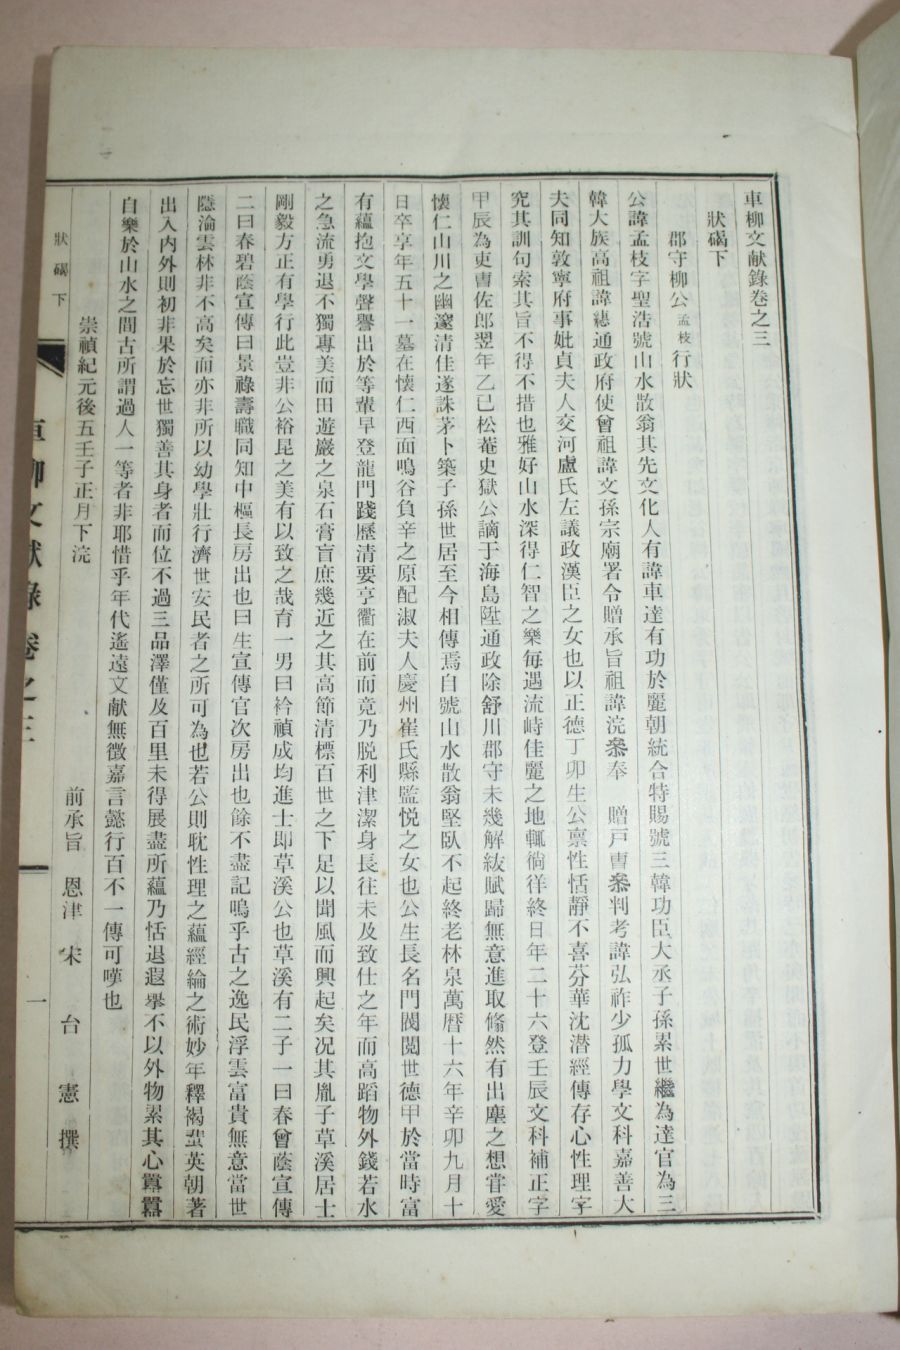 車柳文献錄卷之三
狀碣下
郡守柳公孟枝行狀
公諱孟枝字聖浩號山水散翁其先文化人有諱車達有功於麗朝統合特賜號三韓功臣大丞子孫累世繼為達官為三
韓大族高祖諱繐通政府使曾祖諱文孫宗廟署令贈承旨祖諱浣叅奉 贈戸曺叅判考諱弘祚少孤力學文科嘉善大
夫同知敦寧府事妣貞夫人交河盧氏左議政漢臣之女也以正德丁卯生公禀性恬靜不喜芬華沈潜經傳存心性理字
究其訓句索其旨不得不措也雅好山水深得仁智之樂每遇流峙佳麗之地輒徜徉終日年二十六登壬辰文科補正字
甲辰為吏曺佐郎翌年乙巳松菴史獄公謫于海島陞通政除舒川郡守未幾解紱賦歸無意進取翛然有出塵之想甞愛
懷仁山川之幽邃清佳遂誅茅卜築子孫世居至今相傳焉自號山水散翁堅臥不起終老林泉萬暦十六年辛卯九月十
日卒享年五十一墓在懷仁西面鳴谷負辛之原配淑夫人慶州崔氏縣監悅之女也公生長名門閥閱世德甲於當時富
有蘊抱文學聲譽出於等輩早登龍門踐歷清要亨衢在前而竟乃脱利津潔身長往未及致仕之年而高蹈物外錢若水
之急流勇退不獨專美而田遊巖之泉石膏肓庶幾近之其高節清標百世之下足以聞風而興起矣况其胤子草溪居士
剛毅方正有學行此豈非公裕昆之美有以致之哉育一男曰衿禎成均進士即草溪公也草溪有二子一曰春曾蔭宣傳
二曰春碧蔭宣傳曰景祿壽職同知中樞長房出也曰生宣傳官次房出也餘不盡記嗚乎古之逸民浮雲富貴無意當世
隱淪雲林非不高矣而亦非所以幼學壯行濟世安民者之所可為也若公則耽性理之蘊經綸之術妙年釋褐蜚英朝著
出入内外則初非果於忘世獨善其身者而位不過三品澤僅及百里未得展盡所蘊乃恬退遐擧不以外物累其心囂囂
自樂於山水之間古所謂過人一等者非耶惜乎年代遙遠文献無徵嘉言懿行百不一傳可嘆也
崇禎紀元後五壬子正月下浣
前承旨 恩津 宋 台 憲 撰
狀碣下
車柳文献錄 卷之三
一